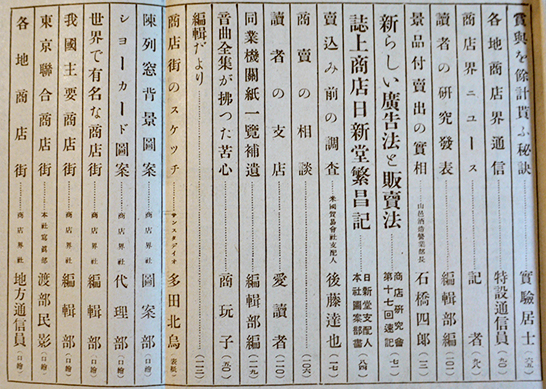 賞與を餘計貰ふ秘訣……實驗居士(六五)
各地商店界通信……特設通信員
商店界ニュース……記者(九八)
讀者の研究發表……編輯部編
景品付賣出の實相 山邑酒造營業部長 石橋四郎
新らしい廣告法と販賣法 商店研究會第十七回速記(七二)
誌上商店日新堂繁昌記 日新堂支配人 本社圖案部書(八四)
賣込み前の調査 米國貿易會社支配人 後藤達也
商賣の相談
讀者の支店……愛讀者
同業機關紙一覽補遺……編輯部編
音曲全集が拂つた苦心……商玩子
編輯だより
商店街のスケッチ サンスタジイオ 多田北烏(表紙)
陳列窓背景圖案 商店界社 圖案部(口繪)
ショーカード圖案 商店界社 代理部(口繪)
世界で有名な商店街 商店界社 編輯部(口繪)
我國主要商店街 商店界社 編輯部(口繪)
東京聯合商店街 本社寫眞部 渡部民影(口繪)
各地商店街 商店界社 地方通信員(口繪)